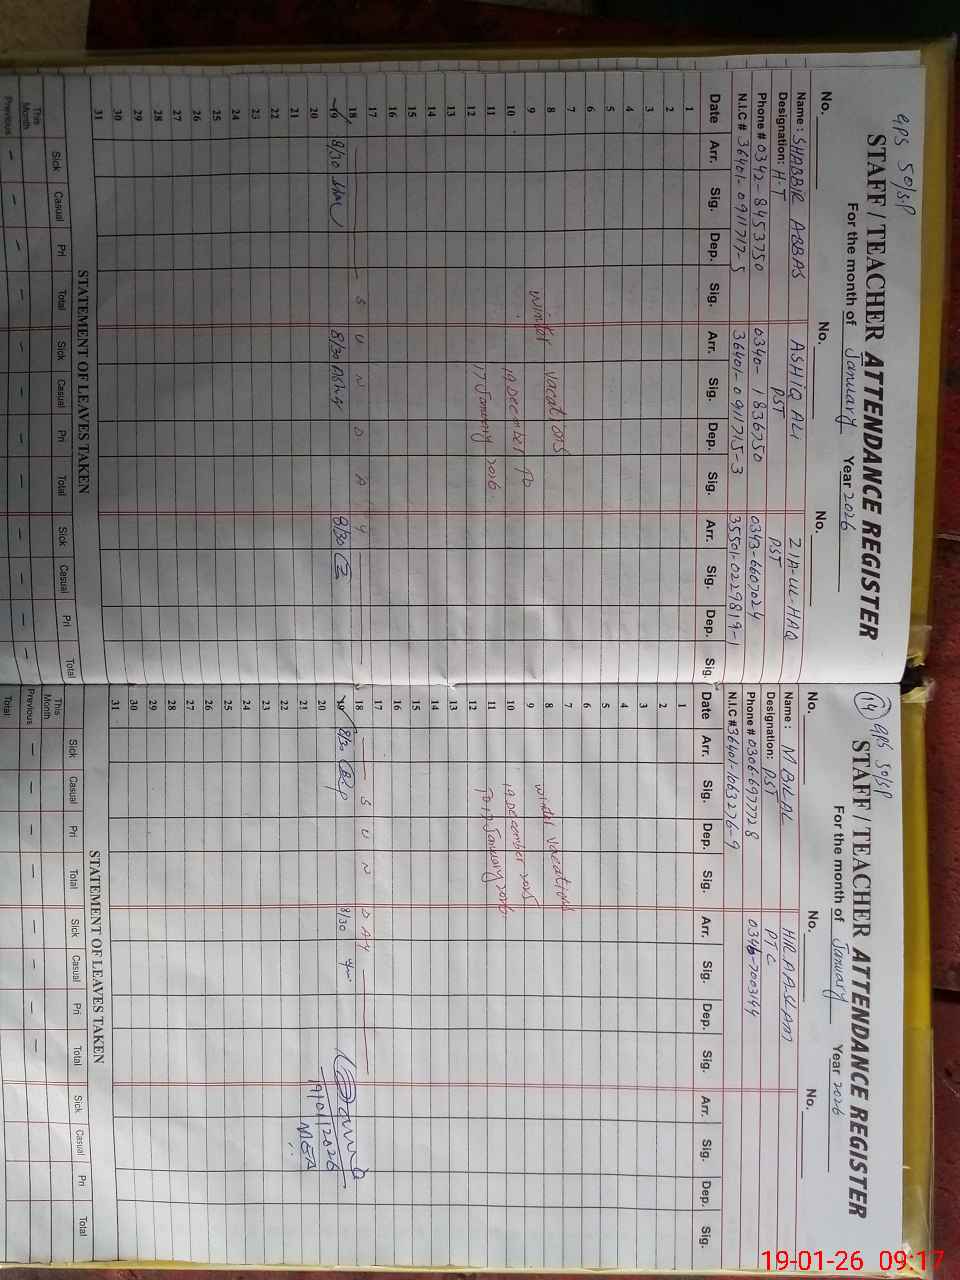 GPS 50/SP
STAFF / TEACHER ATTENDANCE REGISTER
For the month of January Year 2026
No. No. No.
Name : SHABBIR ABBAS ASHIQ ALI ZIA-UL-HAQ
Designation: H-T PST PST
Phone # 0342-8453750 0340-1836750 0343-6607024
N.I.C # 36401-0911717-5 36401-0911715-3 35501-0229819-1
Date Arr. Sig. Dep. Sig. Arr. Sig. Dep. Sig. Arr. Sig. Dep. Sig.
1
2
3
4
5
6
7
8 winter vacations
9
10 19 December to
11 17 January 2026
12
13
14
15
16
17
18 S U N D A Y
19 8/30 8/30 8/30
20
21
22
23
24
25
26
27
28
29
30
31
STATEMENT OF LEAVES TAKEN
Sick Casual Pri Total Sick Casual Pri Total Sick Casual Pri Total
This Month
Previous
14 GPS 50/SP
STAFF / TEACHER ATTENDANCE REGISTER
For the month of January Year 2026
No. No. No.
Name : M BILAL HIRA ASLAM
Designation: PST PTC
Phone # 0306-6977728 0346-7003144
N.I.C # 36401-1063276-9
Date Arr. Sig. Dep. Sig. Arr. Sig. Dep. Sig. Arr. Sig. Dep. Sig.
1
2
3
4
5
6
7
8 winter vacations
9
10 19 December 2025
11 To 17 January 2026
12
13
14
15
16
17
18 S U N D A Y
19 8/30 8/30
20 19/01/2026
21 MEA
22
23
24
25
26
27
28
29
30
31
STATEMENT OF LEAVES TAKEN
Sick Casual Pri Total Sick Casual Pri Total Sick Casual Pri Total
This Month
Previous
Total
19-01-26 09:17